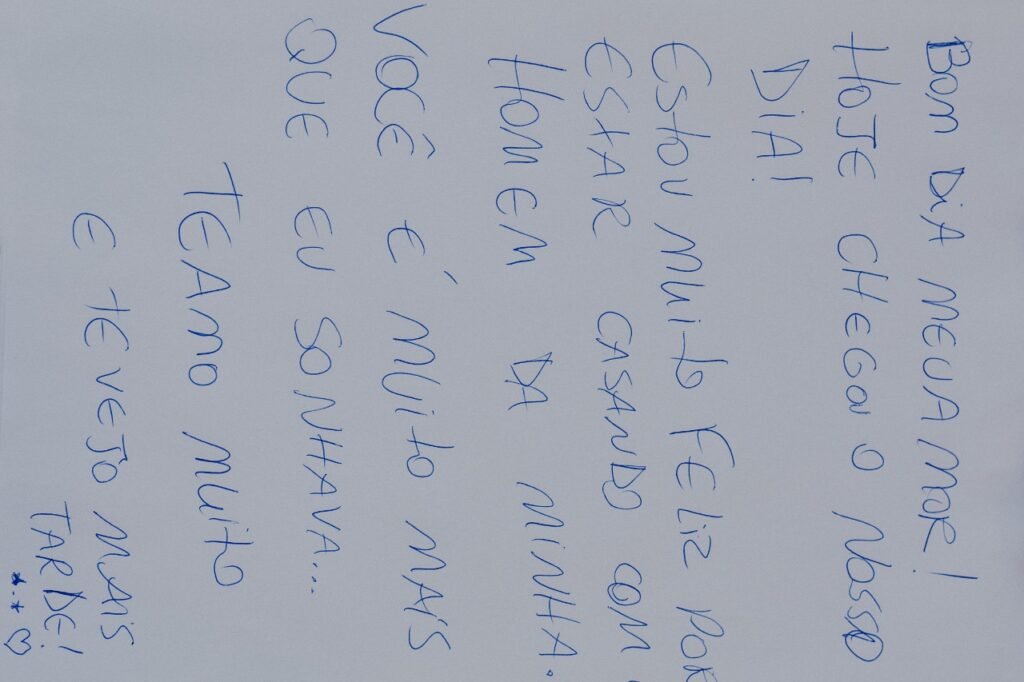 BOM DIA MEU AMOR!
HOJE CHEGOU O NOSSO
DIA!
ESTOU MUITO FELIZ POR
ESTAR CASANDO COM
HOMEM DA MINHA.
VOCÊ É MUITO MAIS
QUE EU SONHAVA...
TE AMO MUITO
E TE VEJO MAIS
TARDE!